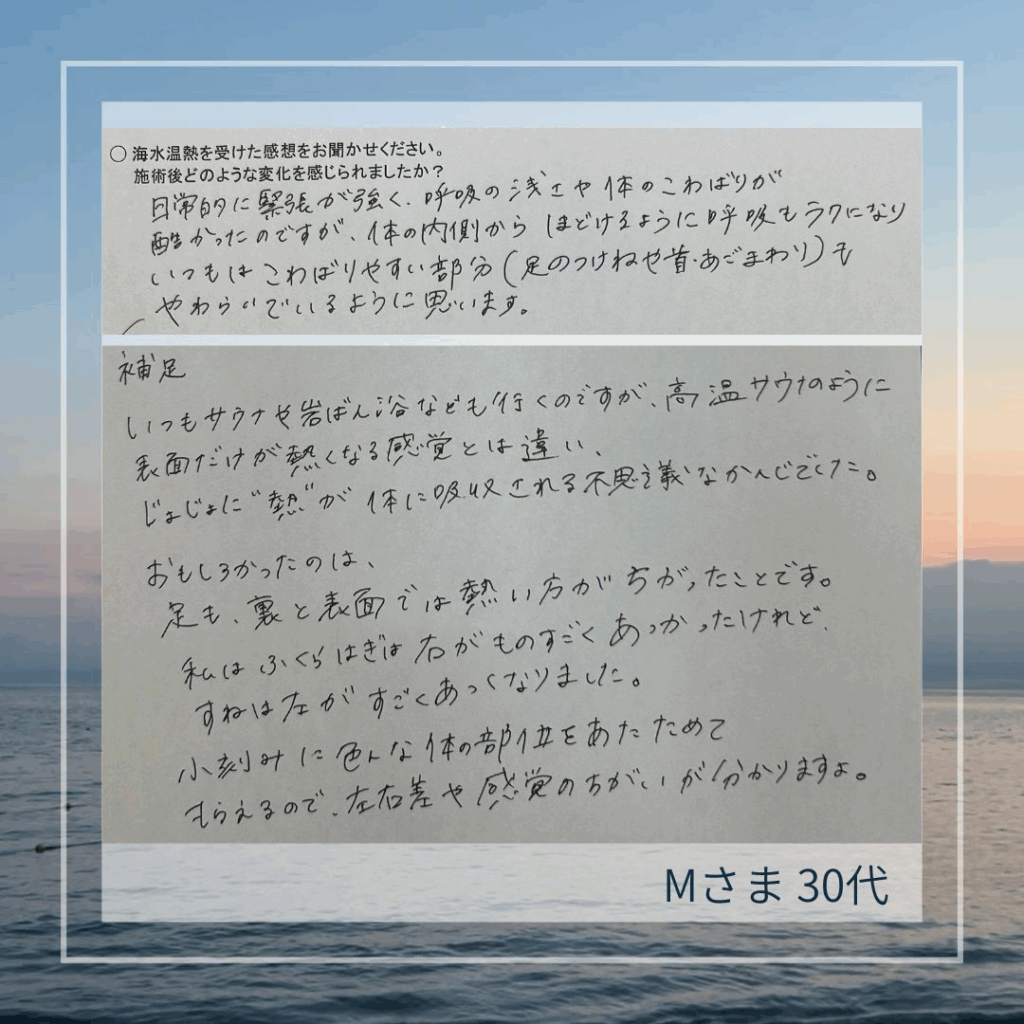 ○ 海水温熱を受けた感想をお聞かせください。
施術後どのような変化を感じられましたか？
日常的に緊張が強く、呼吸の浅さや体のこわばりが
酷かったのですが、体の内側からほどけるように呼吸もラクになり
いつもはこわばりやすい部分(足のつけねや首・あごまわり)も
やわらいでいるように思います。
補足
いつもサウナや岩ばん浴なども行くのですが、高温サウナのように
表面だけが熱くなる感覚とは違い、
じょじょに"熱"が体に吸収される不思議なかんじでした。
おもしろかったのは、
足も、裏と表面では熱い方がちがったことです。
私はふくらはぎは右がものすごくあつかったけれど、
すねは左がすごくあつくなりました。
小刻みに色んな体の部位をあたためて
もらえるので、左右差や感覚のちがいが分かりますよ。
Mさま 30代